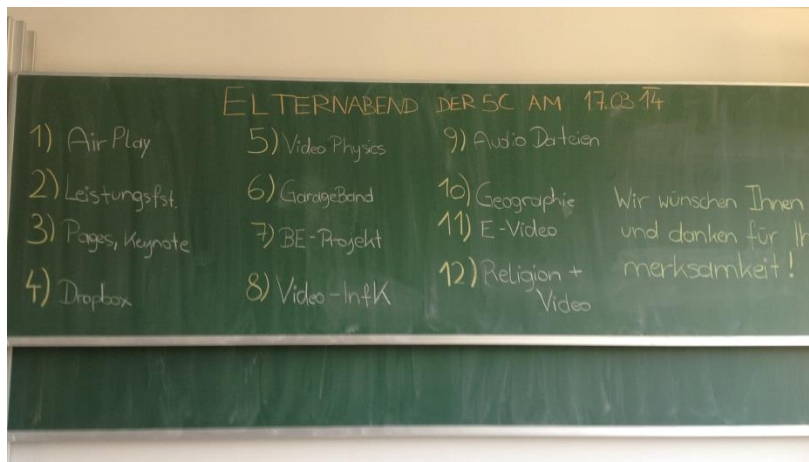 ELTERNABEND DER 5C AM 17.03.14
1) AirPlay
2) Leistungsfst.
3) Pages, Keynote
4) Dropbox
5) Video Physics
6) GarageBand
7) BE-Projekt
8) Video-InfK
9) Audio Dateien
10) Geographie
11) E-Video
12) Religion +
Video
Wir wünschen Ihnen
und danken für Ih
merksamkeit!